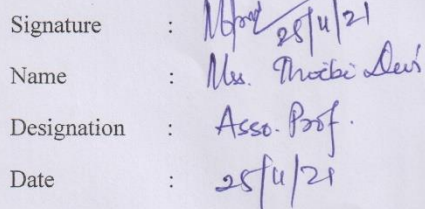 Signature : 25/11/21
Name : Mrs. Thoibi Devi
Designation : Asso. Prof.
Date : 25/11/21